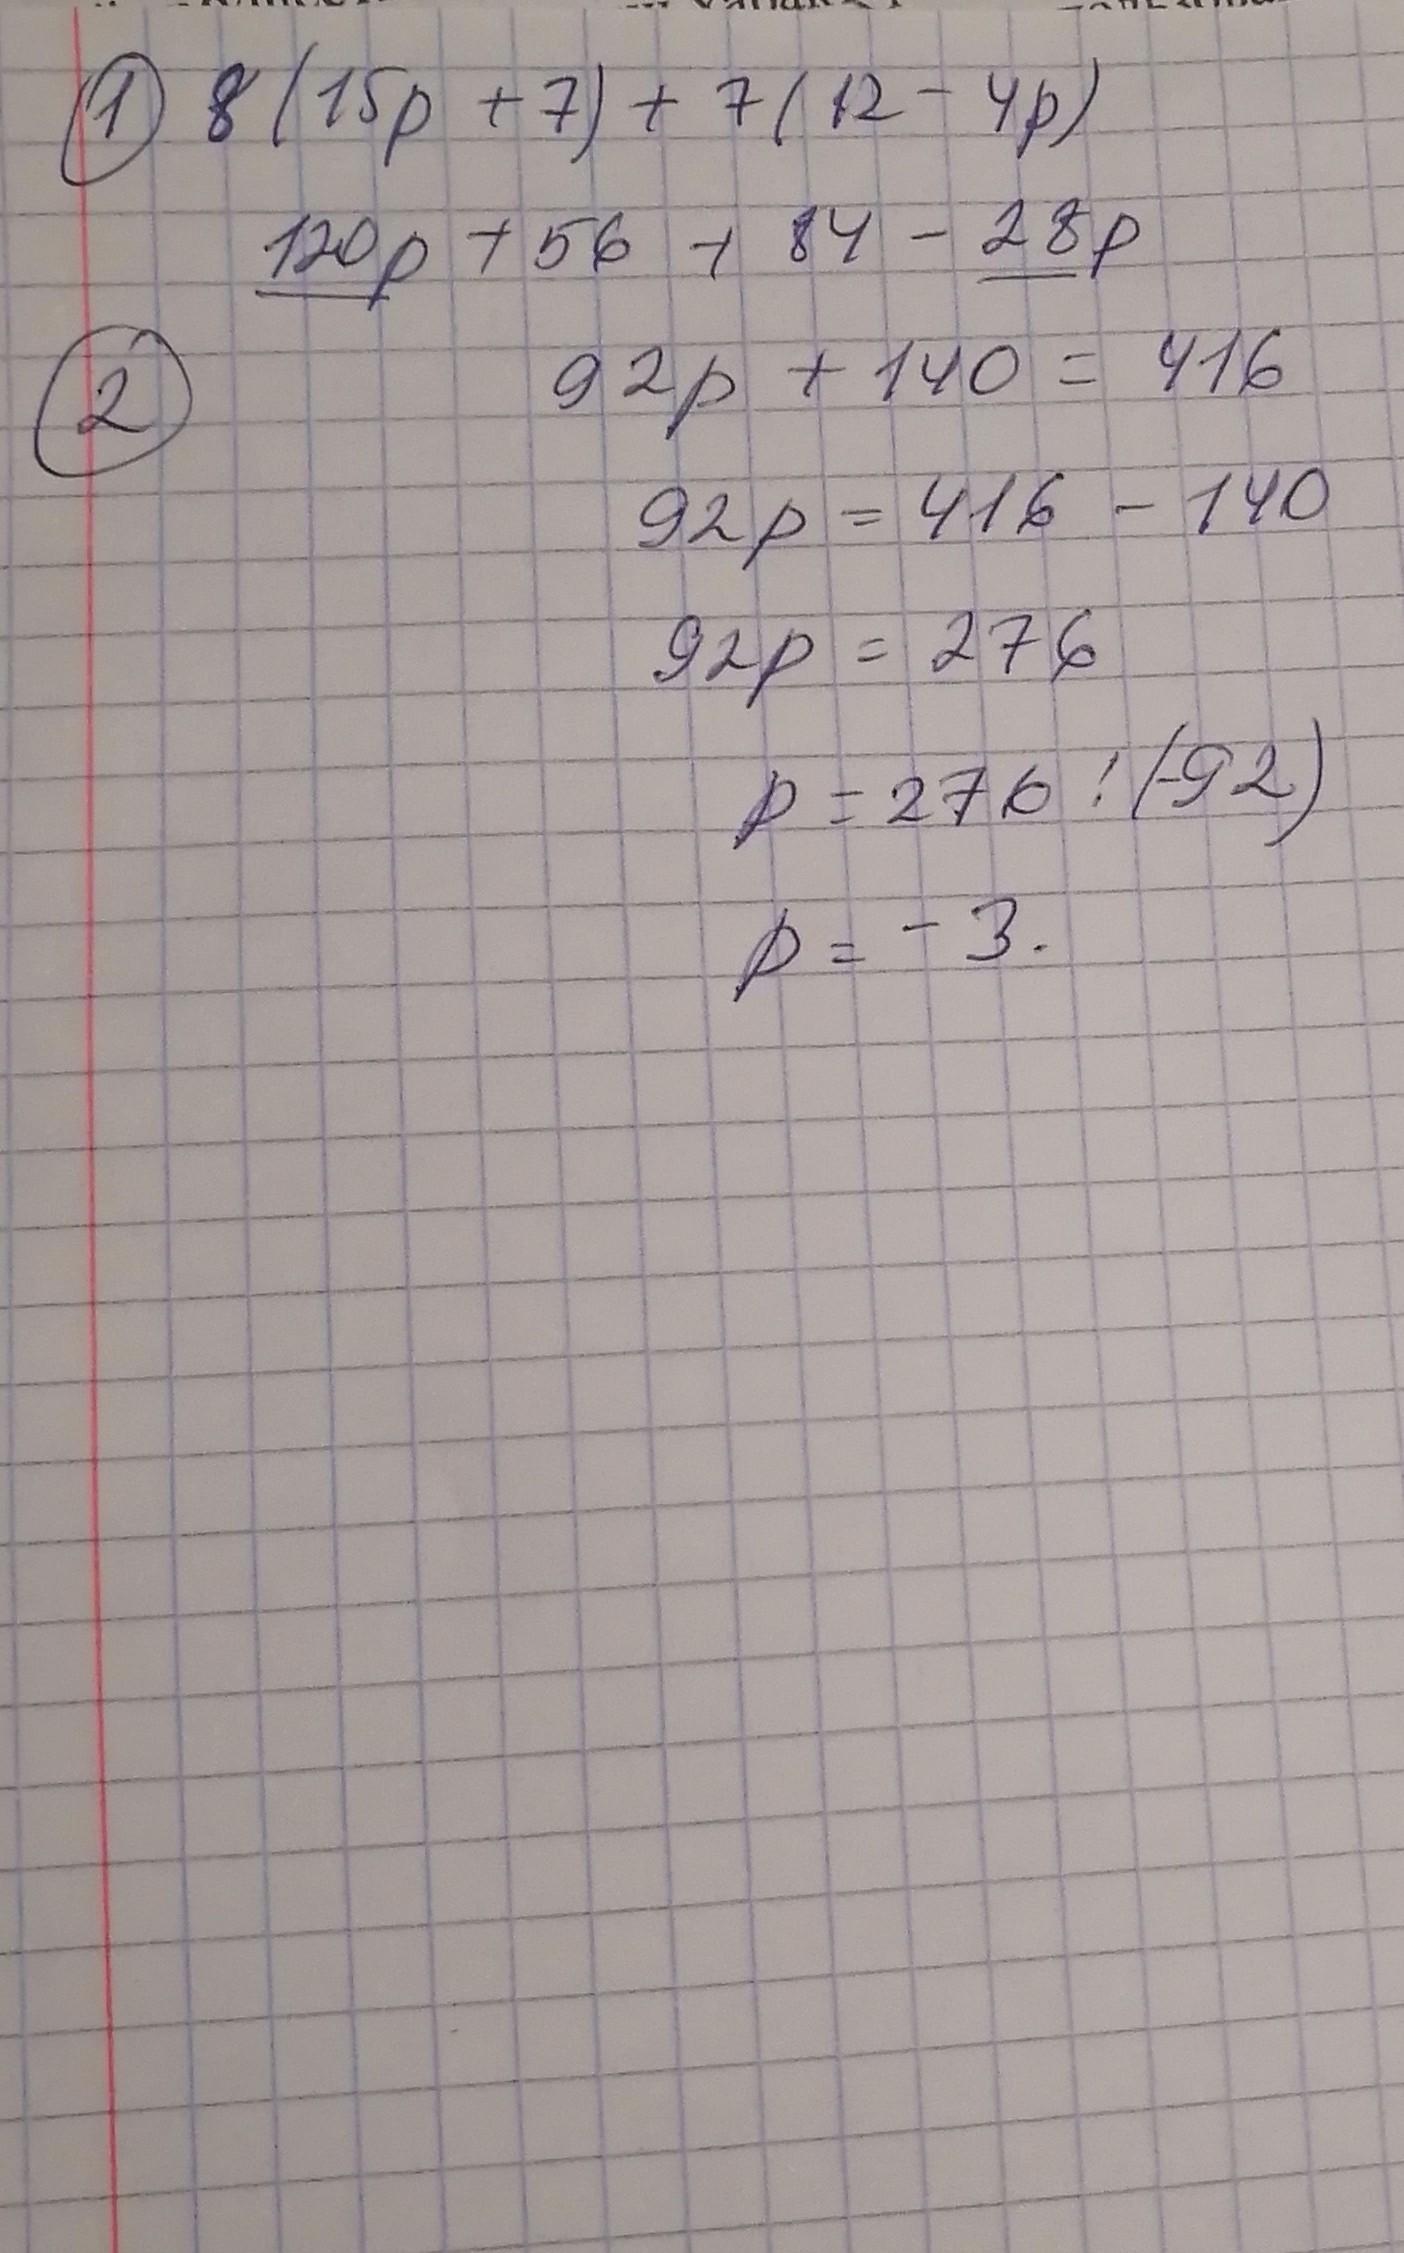 ① 8(15p + 7) + 7(12 - 4p)
120p + 56 + 84 - 28p
② 92p + 140 = 416
92p = 416 - 140
92p = 276
p = 276 : (-92)
p = - 3.